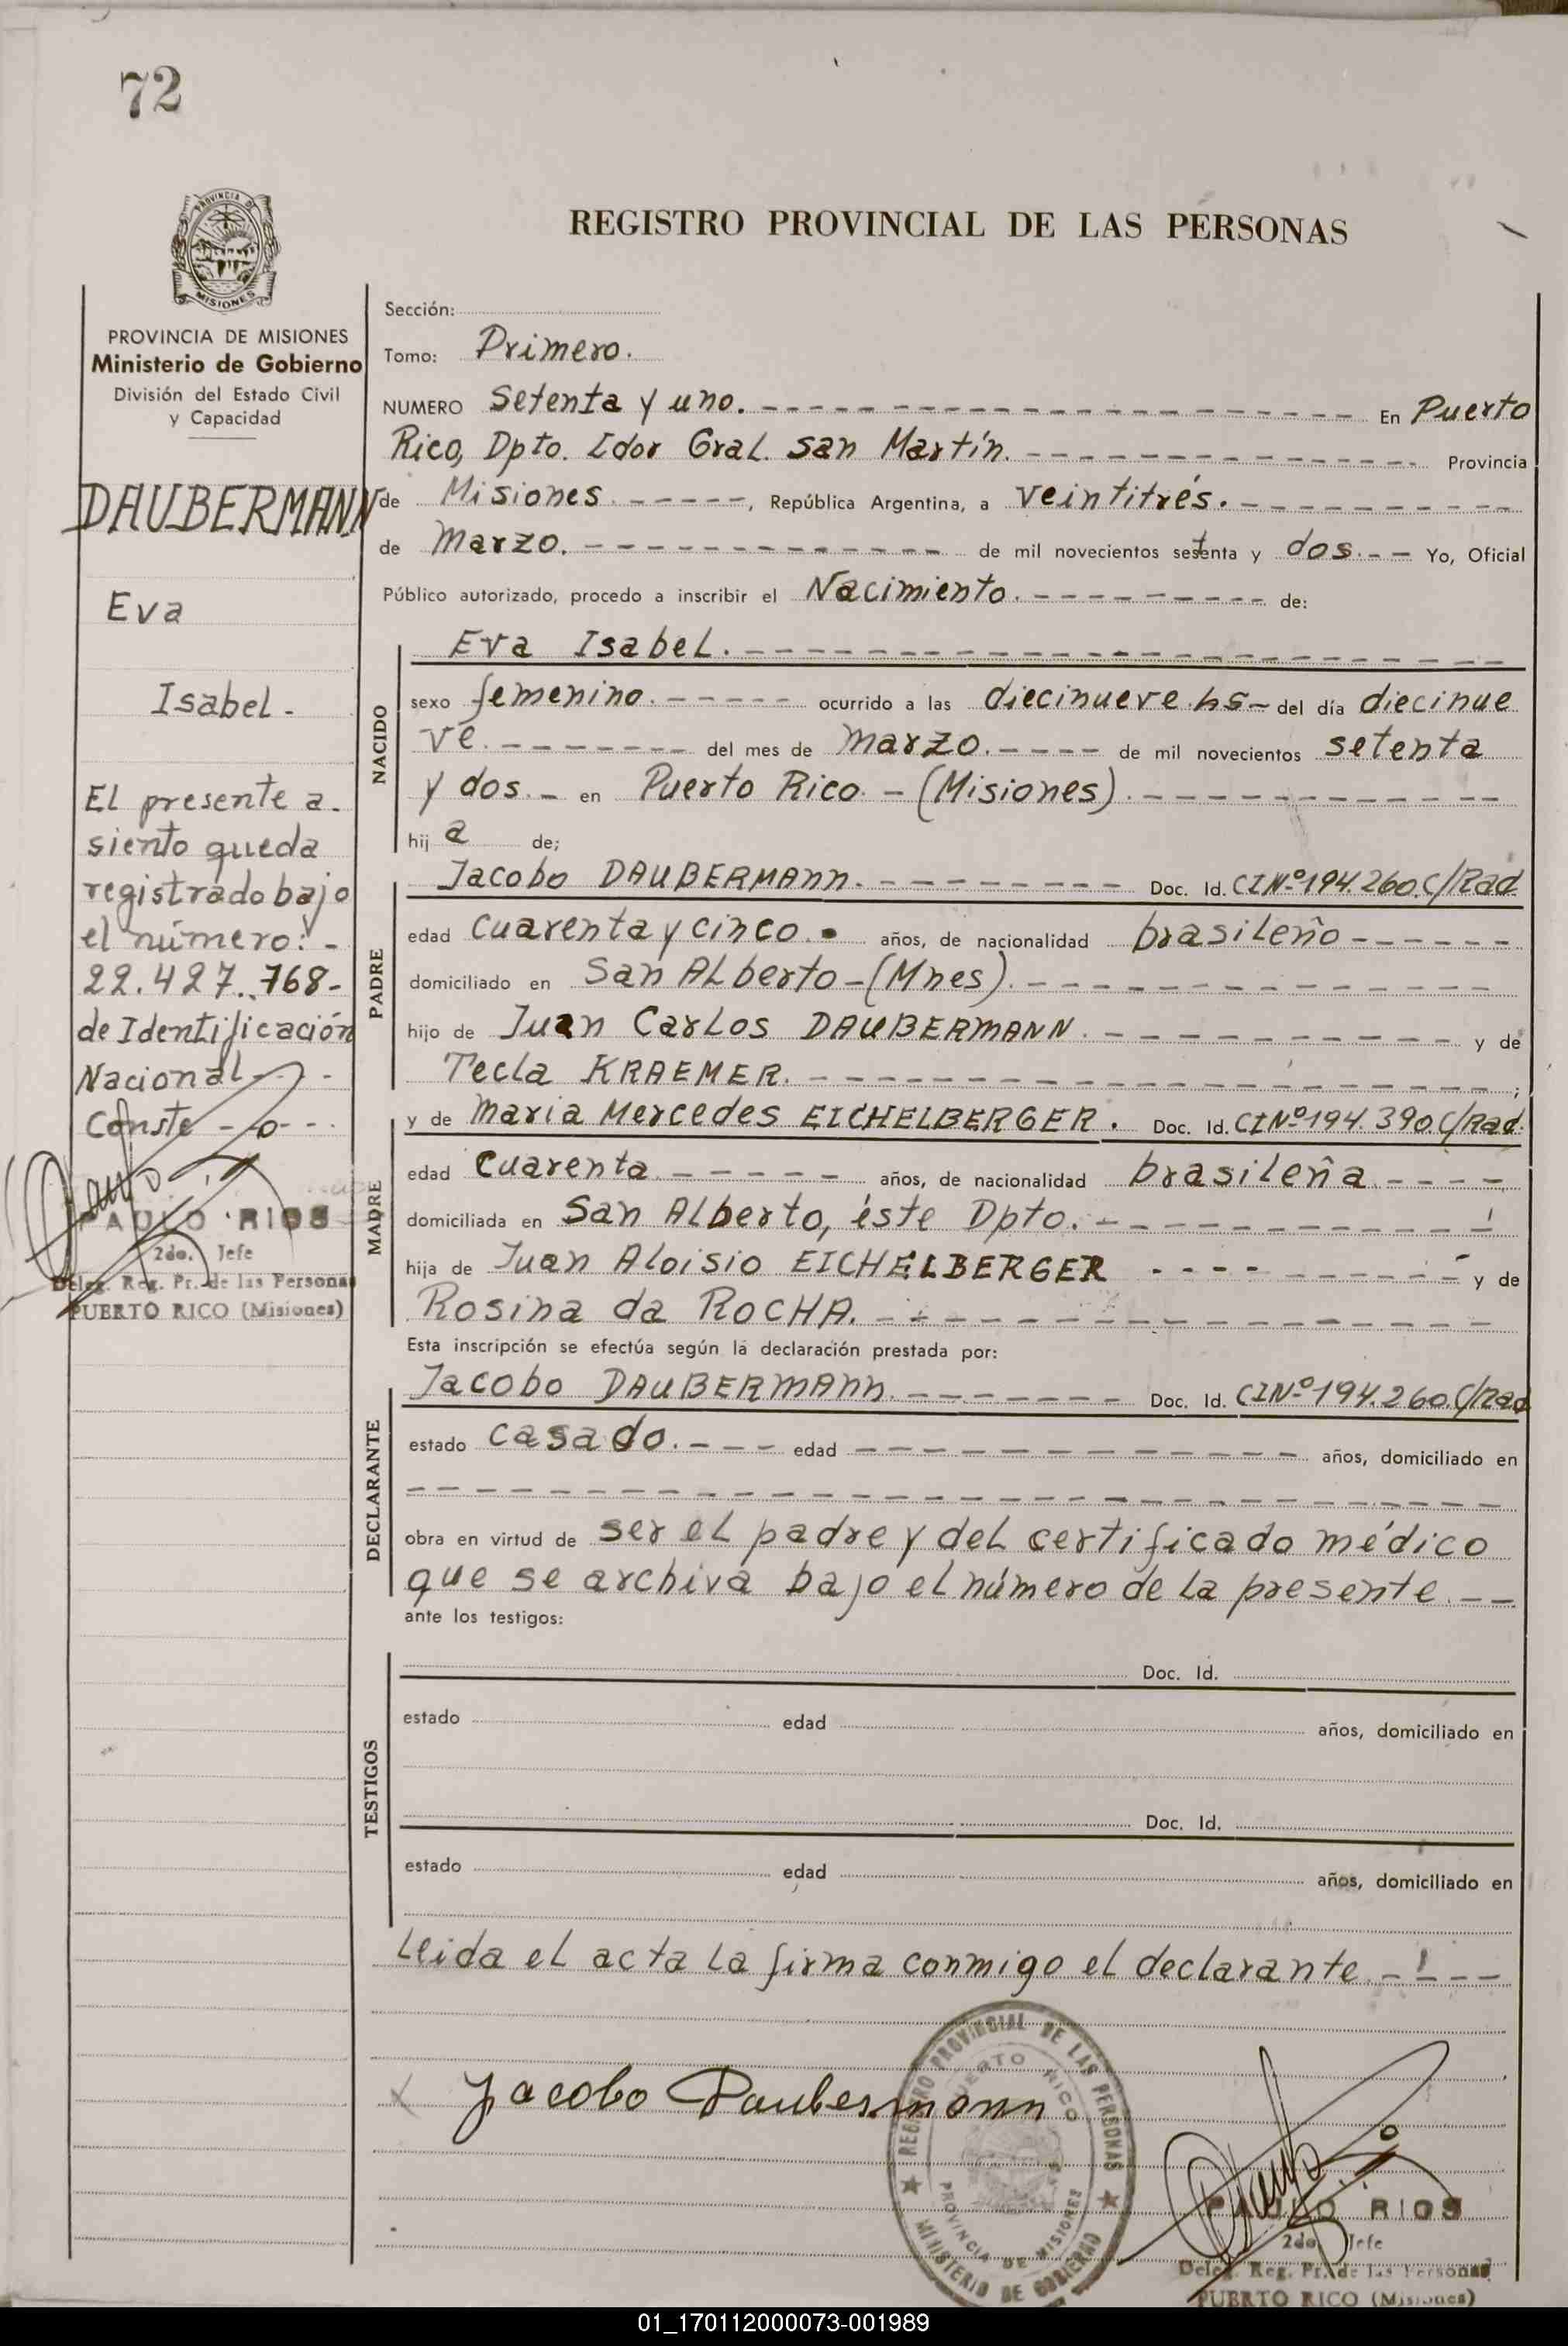 72
PROVINCIA DE
MISIONES
REGISTRO PROVINCIAL DE LAS PERSONAS
PROVINCIA DE MISIONES
Ministerio de Gobierno
División del Estado Civil
y Capacidad
DAUBERMANN
Eva
Isabel -
El presente a-
siento queda
registrado bajo
el número: -
22.427.768-
de Identificación
Nacional - -
Conste - o - - .
PAULO RIOS
2do. Jefe
Deleg. Reg. Pr. de las Personas
PUERTO RICO (Misiones)
Sección:
Tomo: Primero.
NUMERO Setenta y uno. - - - En Puerto
Rico, Dpto. Ldor Gral. San Martín. - - - Provincia
de Misiones. - - -, República Argentina, a veintitrés. - - -
de Marzo. - - - de mil novecientos setenta y dos. - - Yo, Oficial
Público autorizado, procedo a inscribir el Nacimiento. - - - de:
NACIDO
Eva Isabel. - - -
sexo femenino. - - - ocurrido a las diecinueve hs - del día diecinue
ve. - - - del mes de Marzo. - - - de mil novecientos setenta
y dos. - en Puerto Rico - (Misiones). - - -
hij a de;
PADRE
Jacobo DAUBERMANN. - - - Doc. Id. CI Nº 194.260. C/Rad.
edad cuarenta y cinco. años, de nacionalidad brasileño - - -
domiciliado en San Alberto - (Mnes). - - -
hijo de Juan Carlos DAUBERMANN. - - - y de
Tecla KRAEMER. - - - ;
MADRE
y de Maria Mercedes EICHELBERGER. Doc. Id. CI Nº 194.390. C/Rad.
edad cuarenta. - - - años, de nacionalidad brasileña. - - -
domiciliada en San Alberto, éste Dpto. - - -
hija de Juan Aloisio EICHELBERGER - - - y de
Rosina da ROCHA. - - -
Esta inscripción se efectúa según la declaración prestada por:
DECLARANTE
Jacobo DAUBERMANN. - - - Doc. Id. CI Nº 194.260. C/Rad
estado casado. - - - edad - - - años, domiciliado en
- - -
obra en virtud de ser el padre y del certificado médico
que se archiva bajo el número de la presente. - -
ante los testigos:
TESTIGOS
Doc. Id.
estado edad años, domiciliado en
Doc. Id.
estado edad años, domiciliado en
Leida el acta la firma conmigo el declarante. - - - -
x Jacobo Daubermann
REGISTRO PROVINCIAL DE LAS PERSONAS
PUERTO RICO
PROVINCIA DE MISIONES
MINISTERIO DE GOBIERNO
PAULO RIOS
2do. Jefe
Deleg. Reg. Pr. de las Personas
PUERTO RICO (Misiones)
01_170112000073-001989